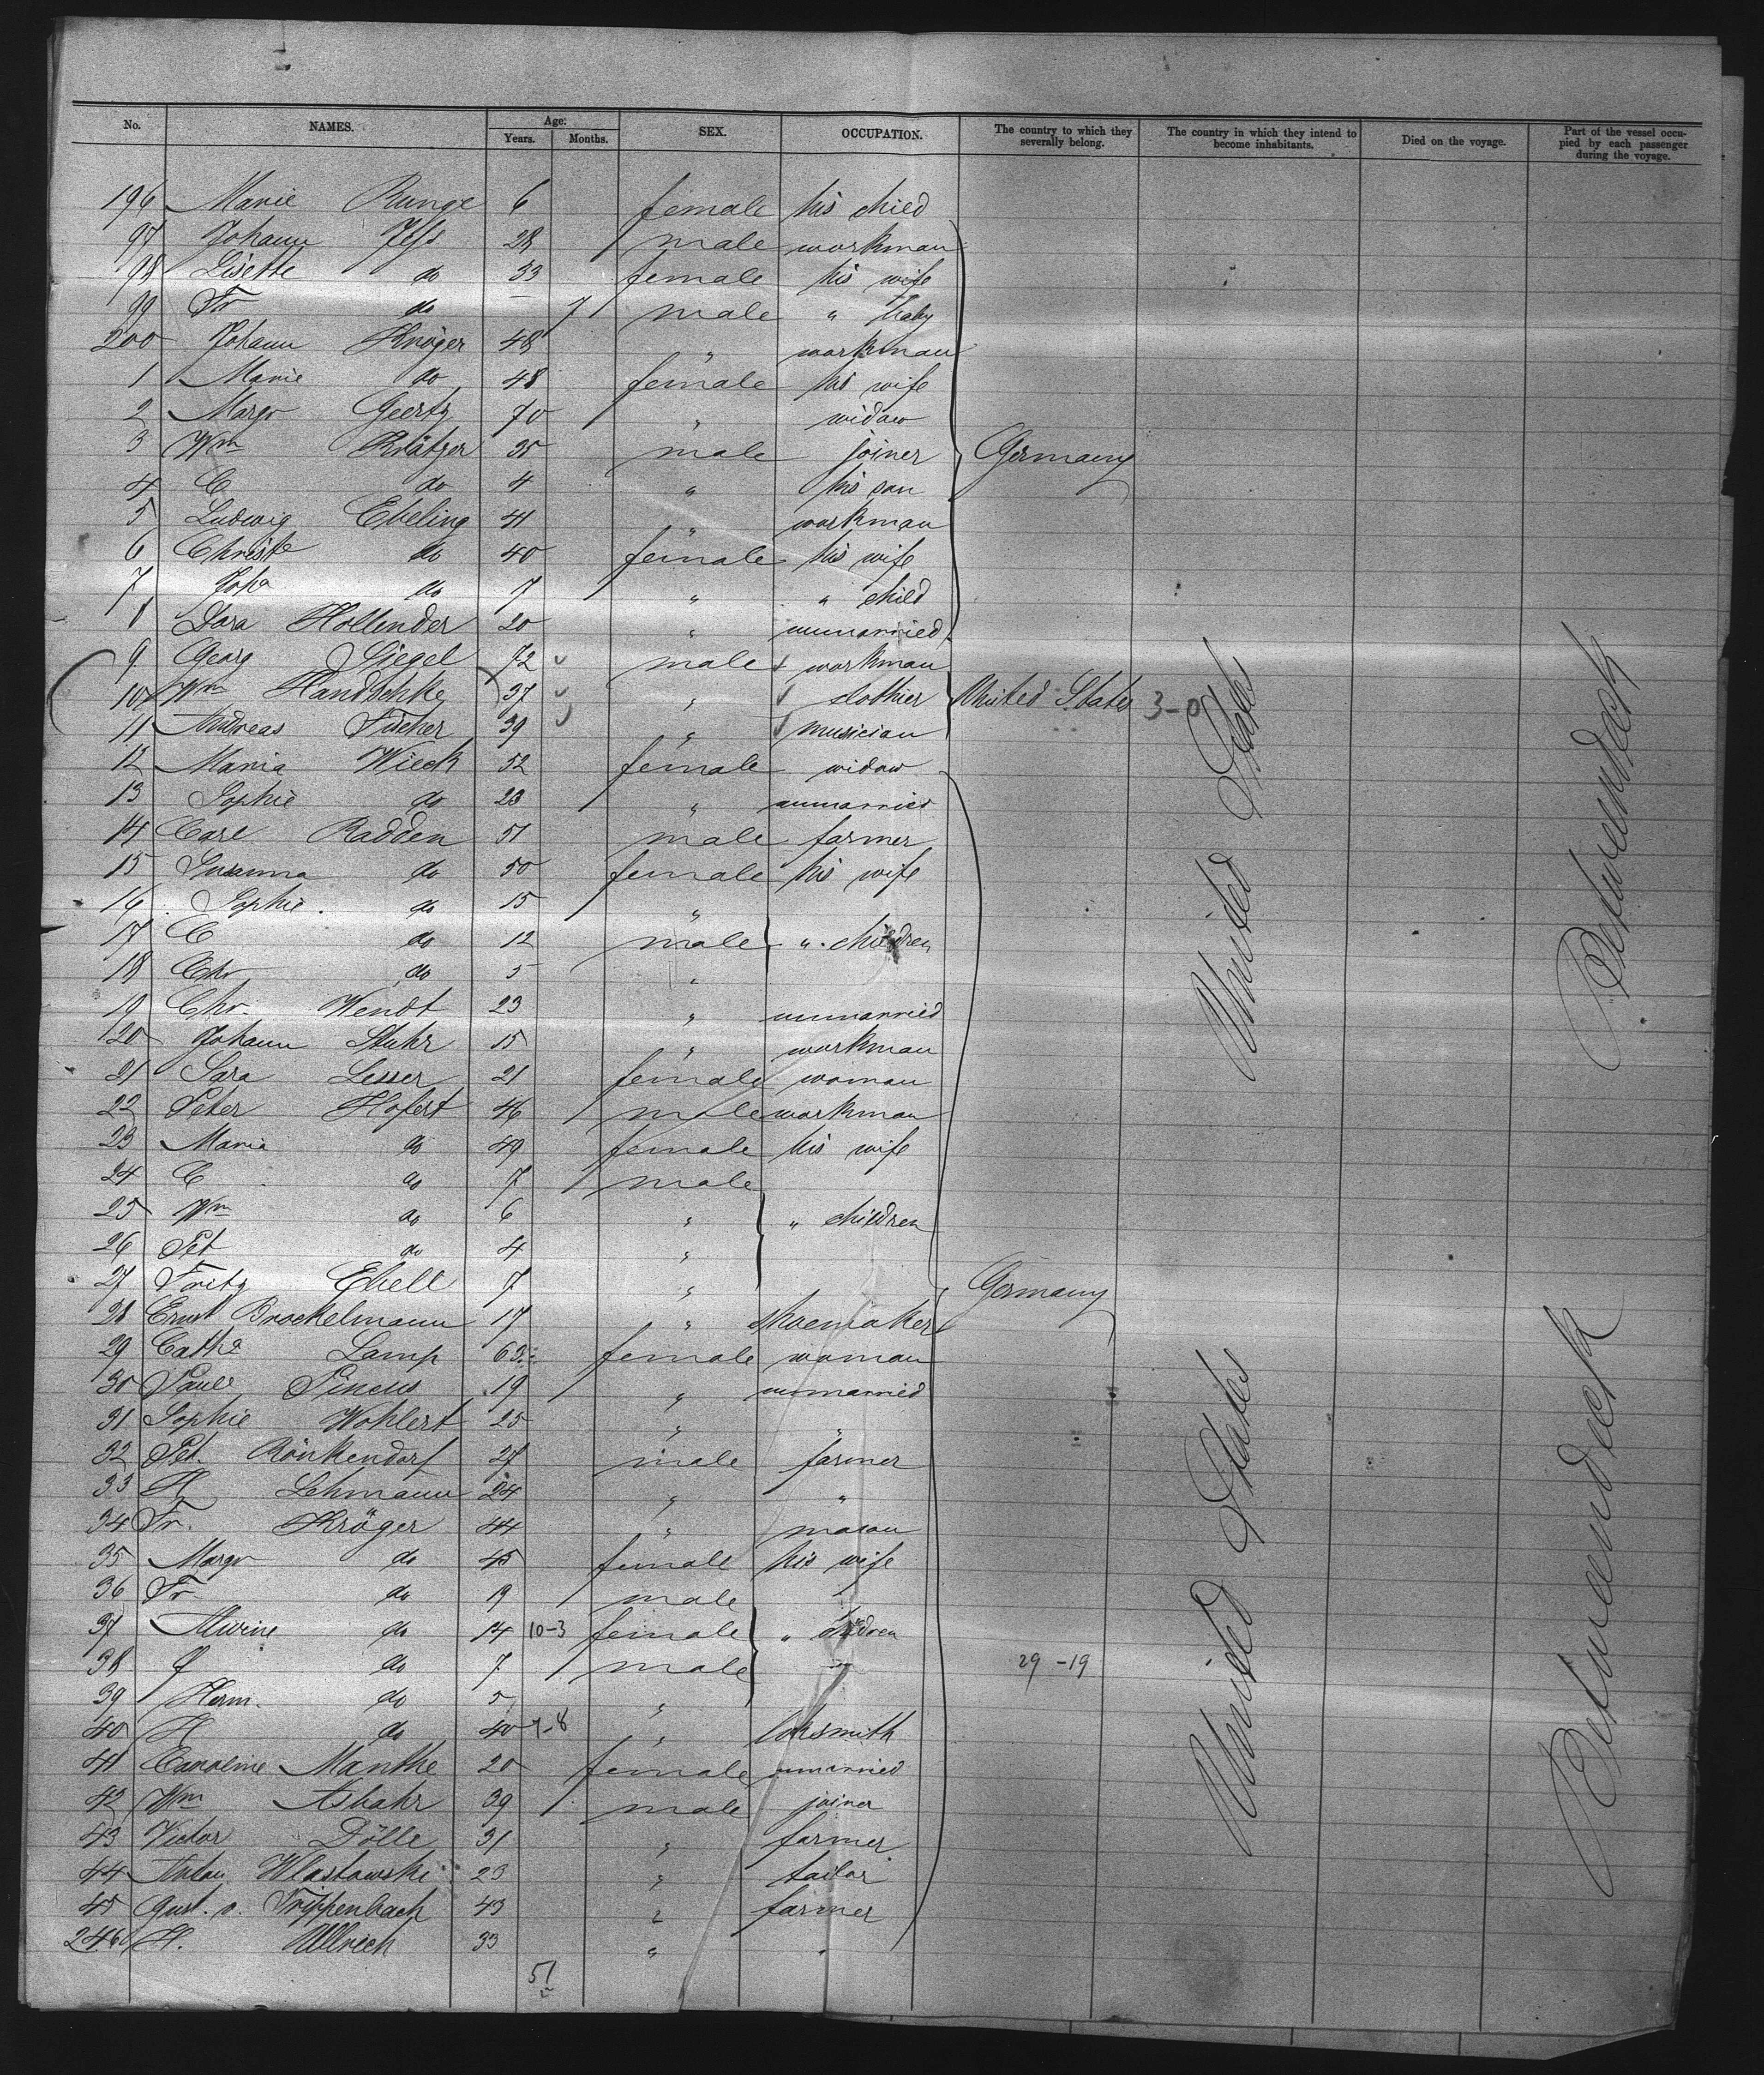 No. NAMES. Age: Years. Months. SEX. OCCUPATION. The country to which they severally belong. The country in which they intend to become inhabitants. Died on the voyage. Part of the vessel occupied by each passenger during the voyage.
196 Marie Runge 6 female his child
97 Johann Jess 28 male workman
98 Lisette do 33 female his wife
99 Fr do 7 male " baby
200 Johann Kröger 48 " workman
1 Marie do 48 female his wife
2 Margr Geertz 70 " widow
3 Wm Krätzer 35 male joiner Germany
4 C do 4 " his son
5 Ludwig Ebeling 41 " workman
6 Christe do 40 female his wife
7 Joha do 7 " " child
8 Sara Hollender 20 " unmarried
9 Georg Siegel 72 male workman
10 Wm Handschke 37 " clothier United States 3-0
11 Andreas Fischer 39 " musician
12 Maria Wieck 52 female widow
13 Sophie do 23 " unmarried
14 Carl Radden 51 male farmer
15 Susanna do 50 female his wife
16 Sophie do 15 "
17 C do 12 male " children
18 Chr do 5 "
19 Chr. Wendt 23 " unmarried
120 Johann Stuhr 15 " workman
21 Sara Lesser 21 female woman
22 Peter Hofert 46 male workman
23 Maria do 49 female his wife
24 C do 7 male
25 Wm do 6 " " children
26 Pet do 4 "
27 Fritz Ebell 7 " Germany
28 Ernst Brockelmann 17 " shoemaker
29 Catha Lamp 63 female woman
30 Paul Pincus 19 " unmarried
31 Sophie Wohlert 25 " "
32 Pet. Rönkendorf 27 male farmer
33 H Lehmann 24 " "
34 Fr. Kröger 44 " mason
35 Margr do 45 female his wife
36 Fr do 9 male
37 Alwine do 14 10-3 female " children
38 J do 7 male 29-19
39 Herm. do 5 "
40 H do 40 7-8 " locksmith
41 Caroline Manthe 20 female unmarried
42 Wm Asbahr 39 male joiner
43 Victor Dölle 31 " farmer
44 Anton Wlastowski 23 " tailor
45 Gust. v. Trippenbach 43 " farmer
246 H. Ullrich 33 " "
51
United States
Betweendeck
United States
Betweendeck